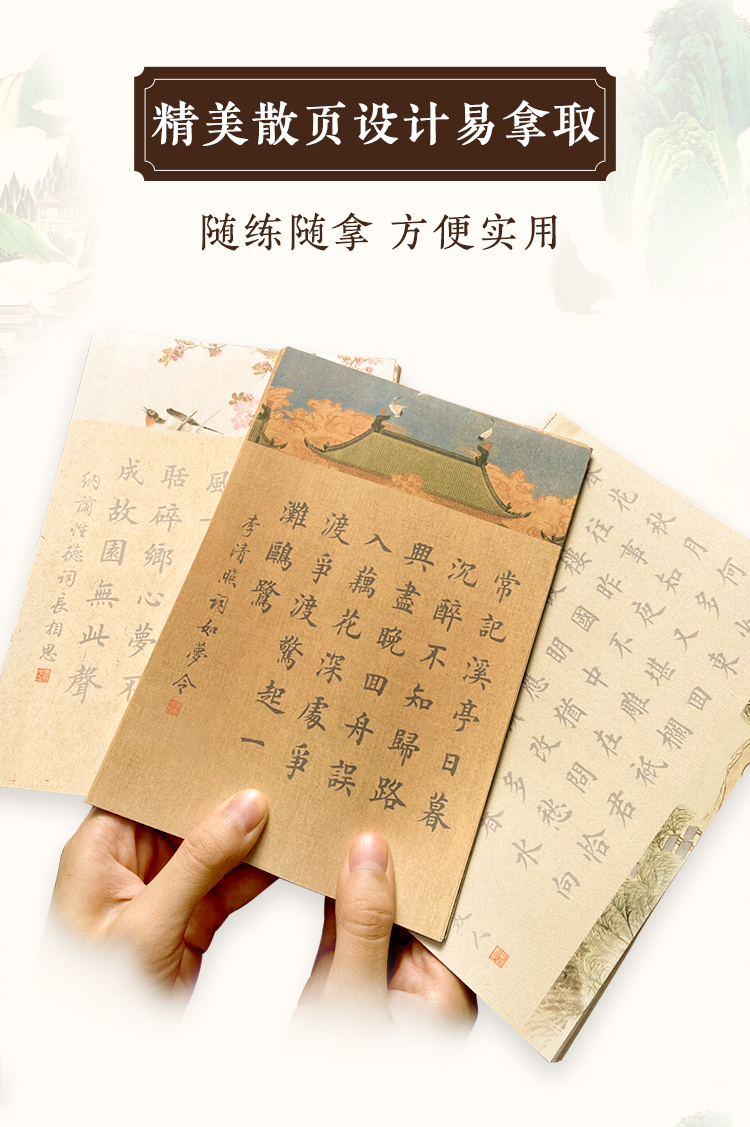 精美散页设计易拿取
随练随拿 方便实用
風一
聒碎鄉心夢不
成故園無此聲
納蘭性德词長相思
常記溪亭日暮
沉醉不知歸路
興盡晚囬舟誤
入藕花深處爭
渡爭渡驚起一
灘鷗鷺
李清照词如夢令
花秋月何
往事知多
樓昨夜又東
國不堪囬
明中雕欄
應猶在祇
改問君
多愁恰
春水向